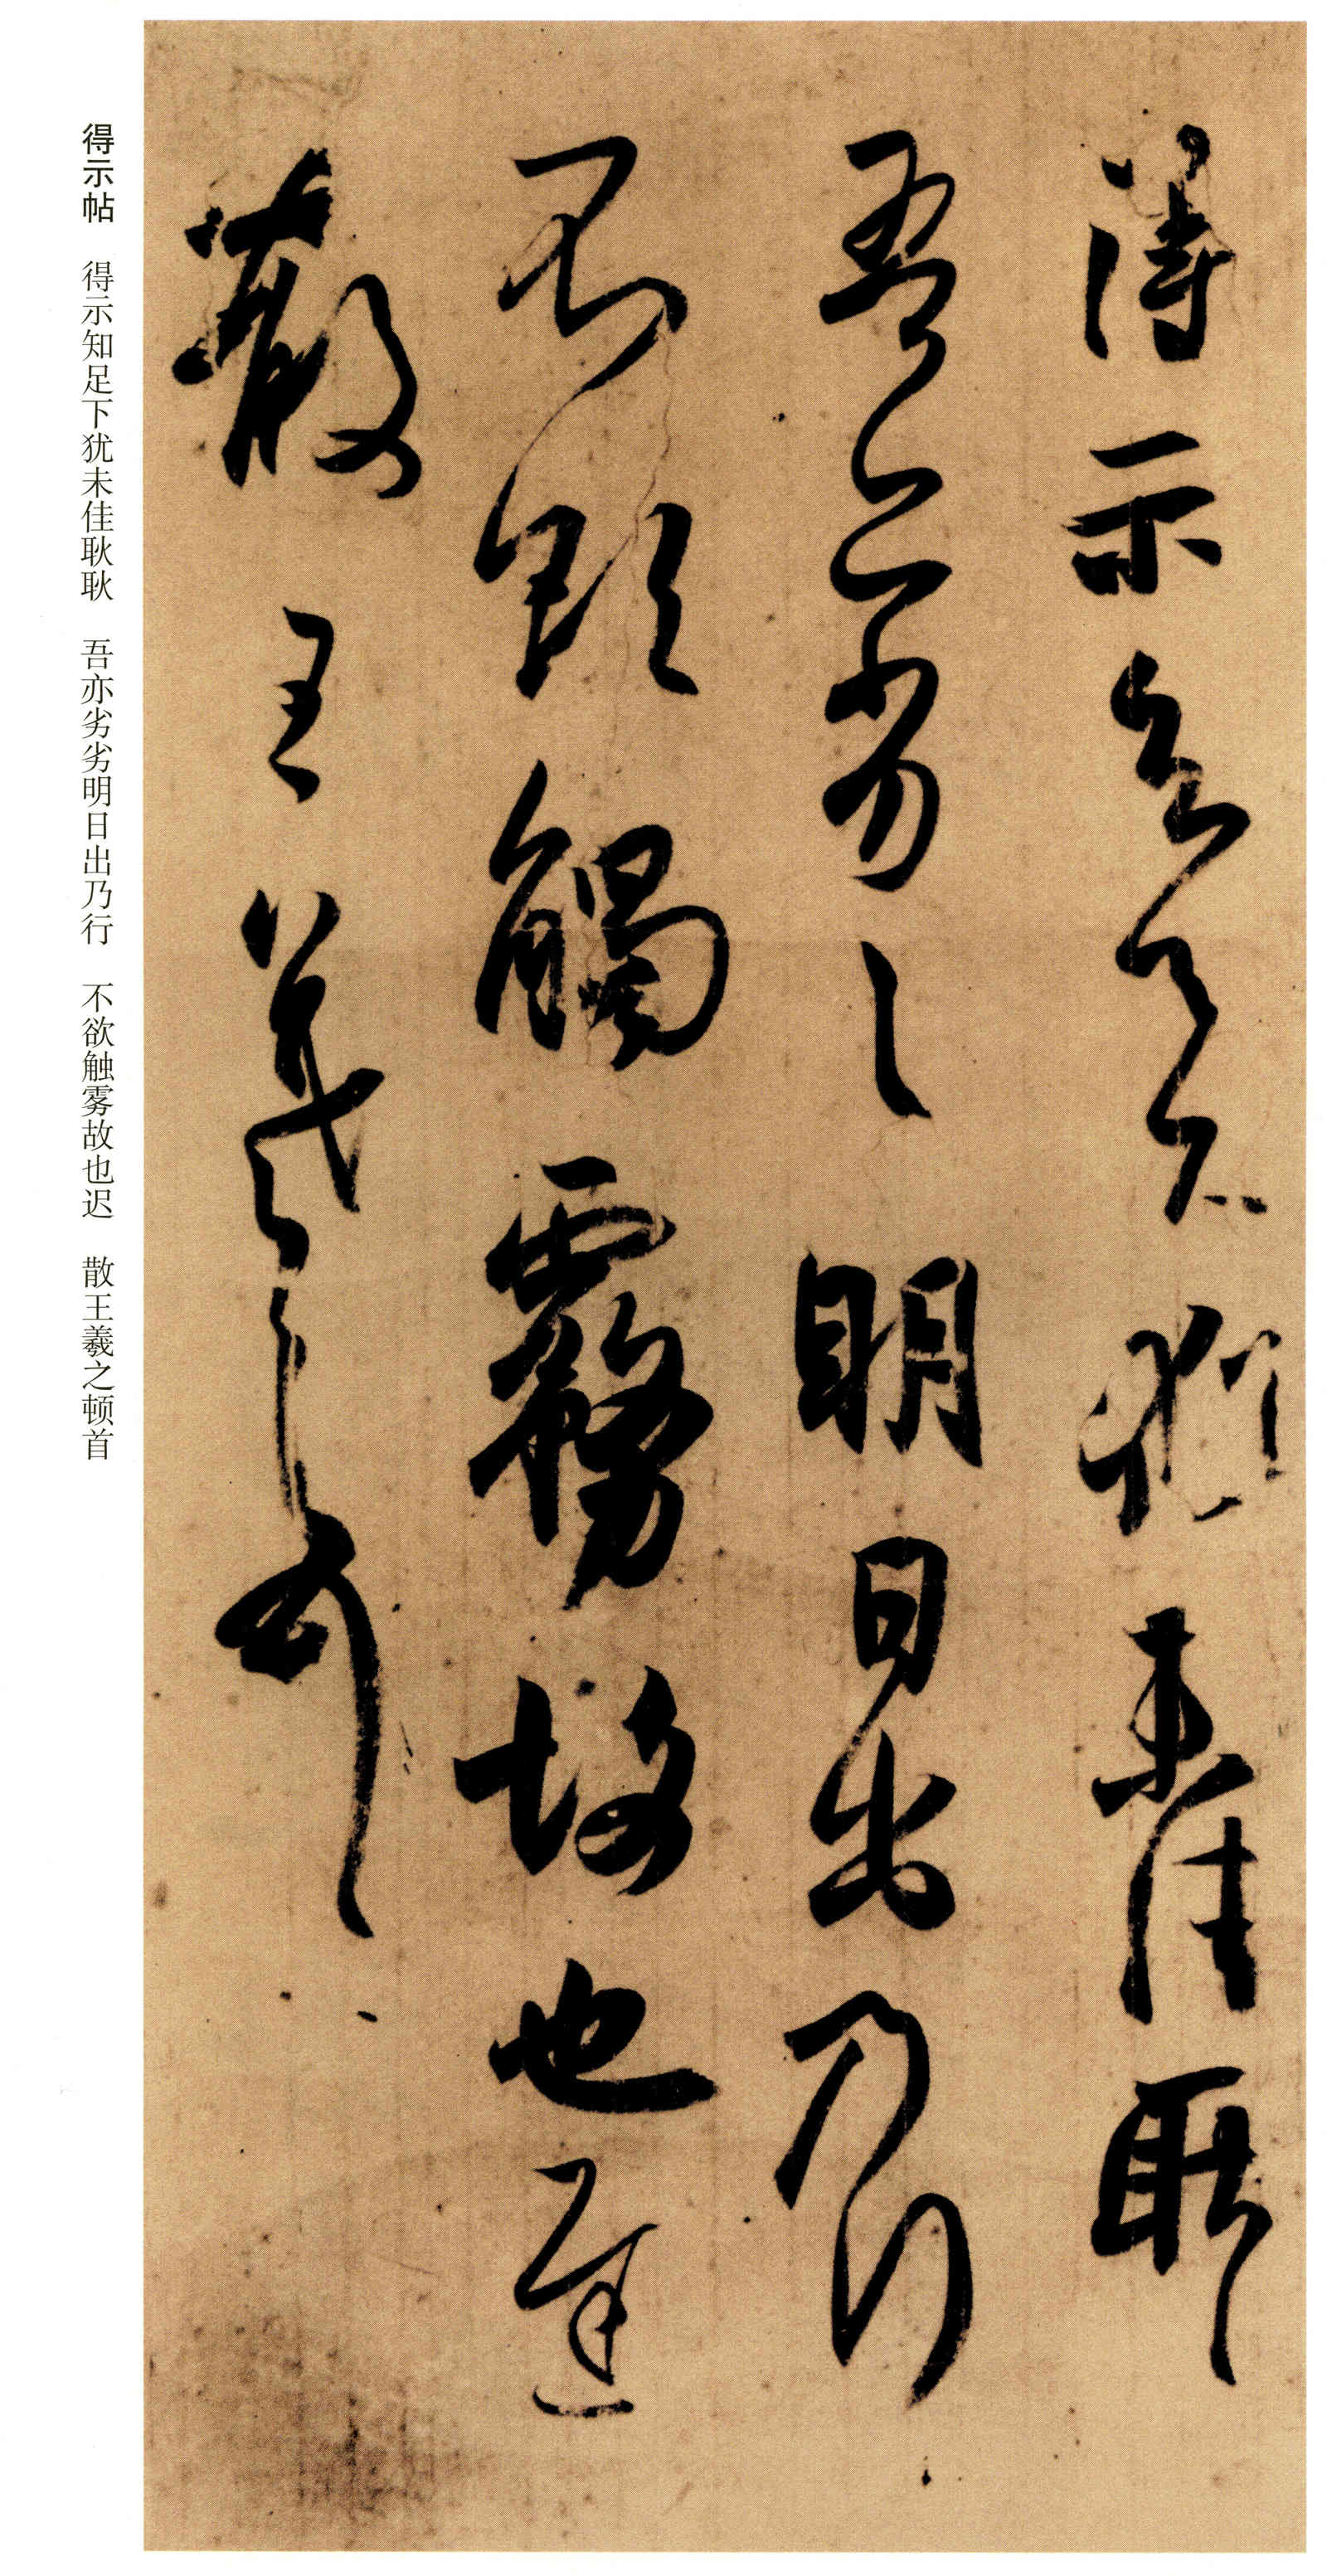 得示知足下猶未佳耿
吾亦劣劣明日出乃行
不欲觸霧故也遲
散王羲之頓首
得示帖 得示知足下犹未佳耿耿 吾亦劣劣明日出乃行 不欲触雾故也迟 散王羲之顿首